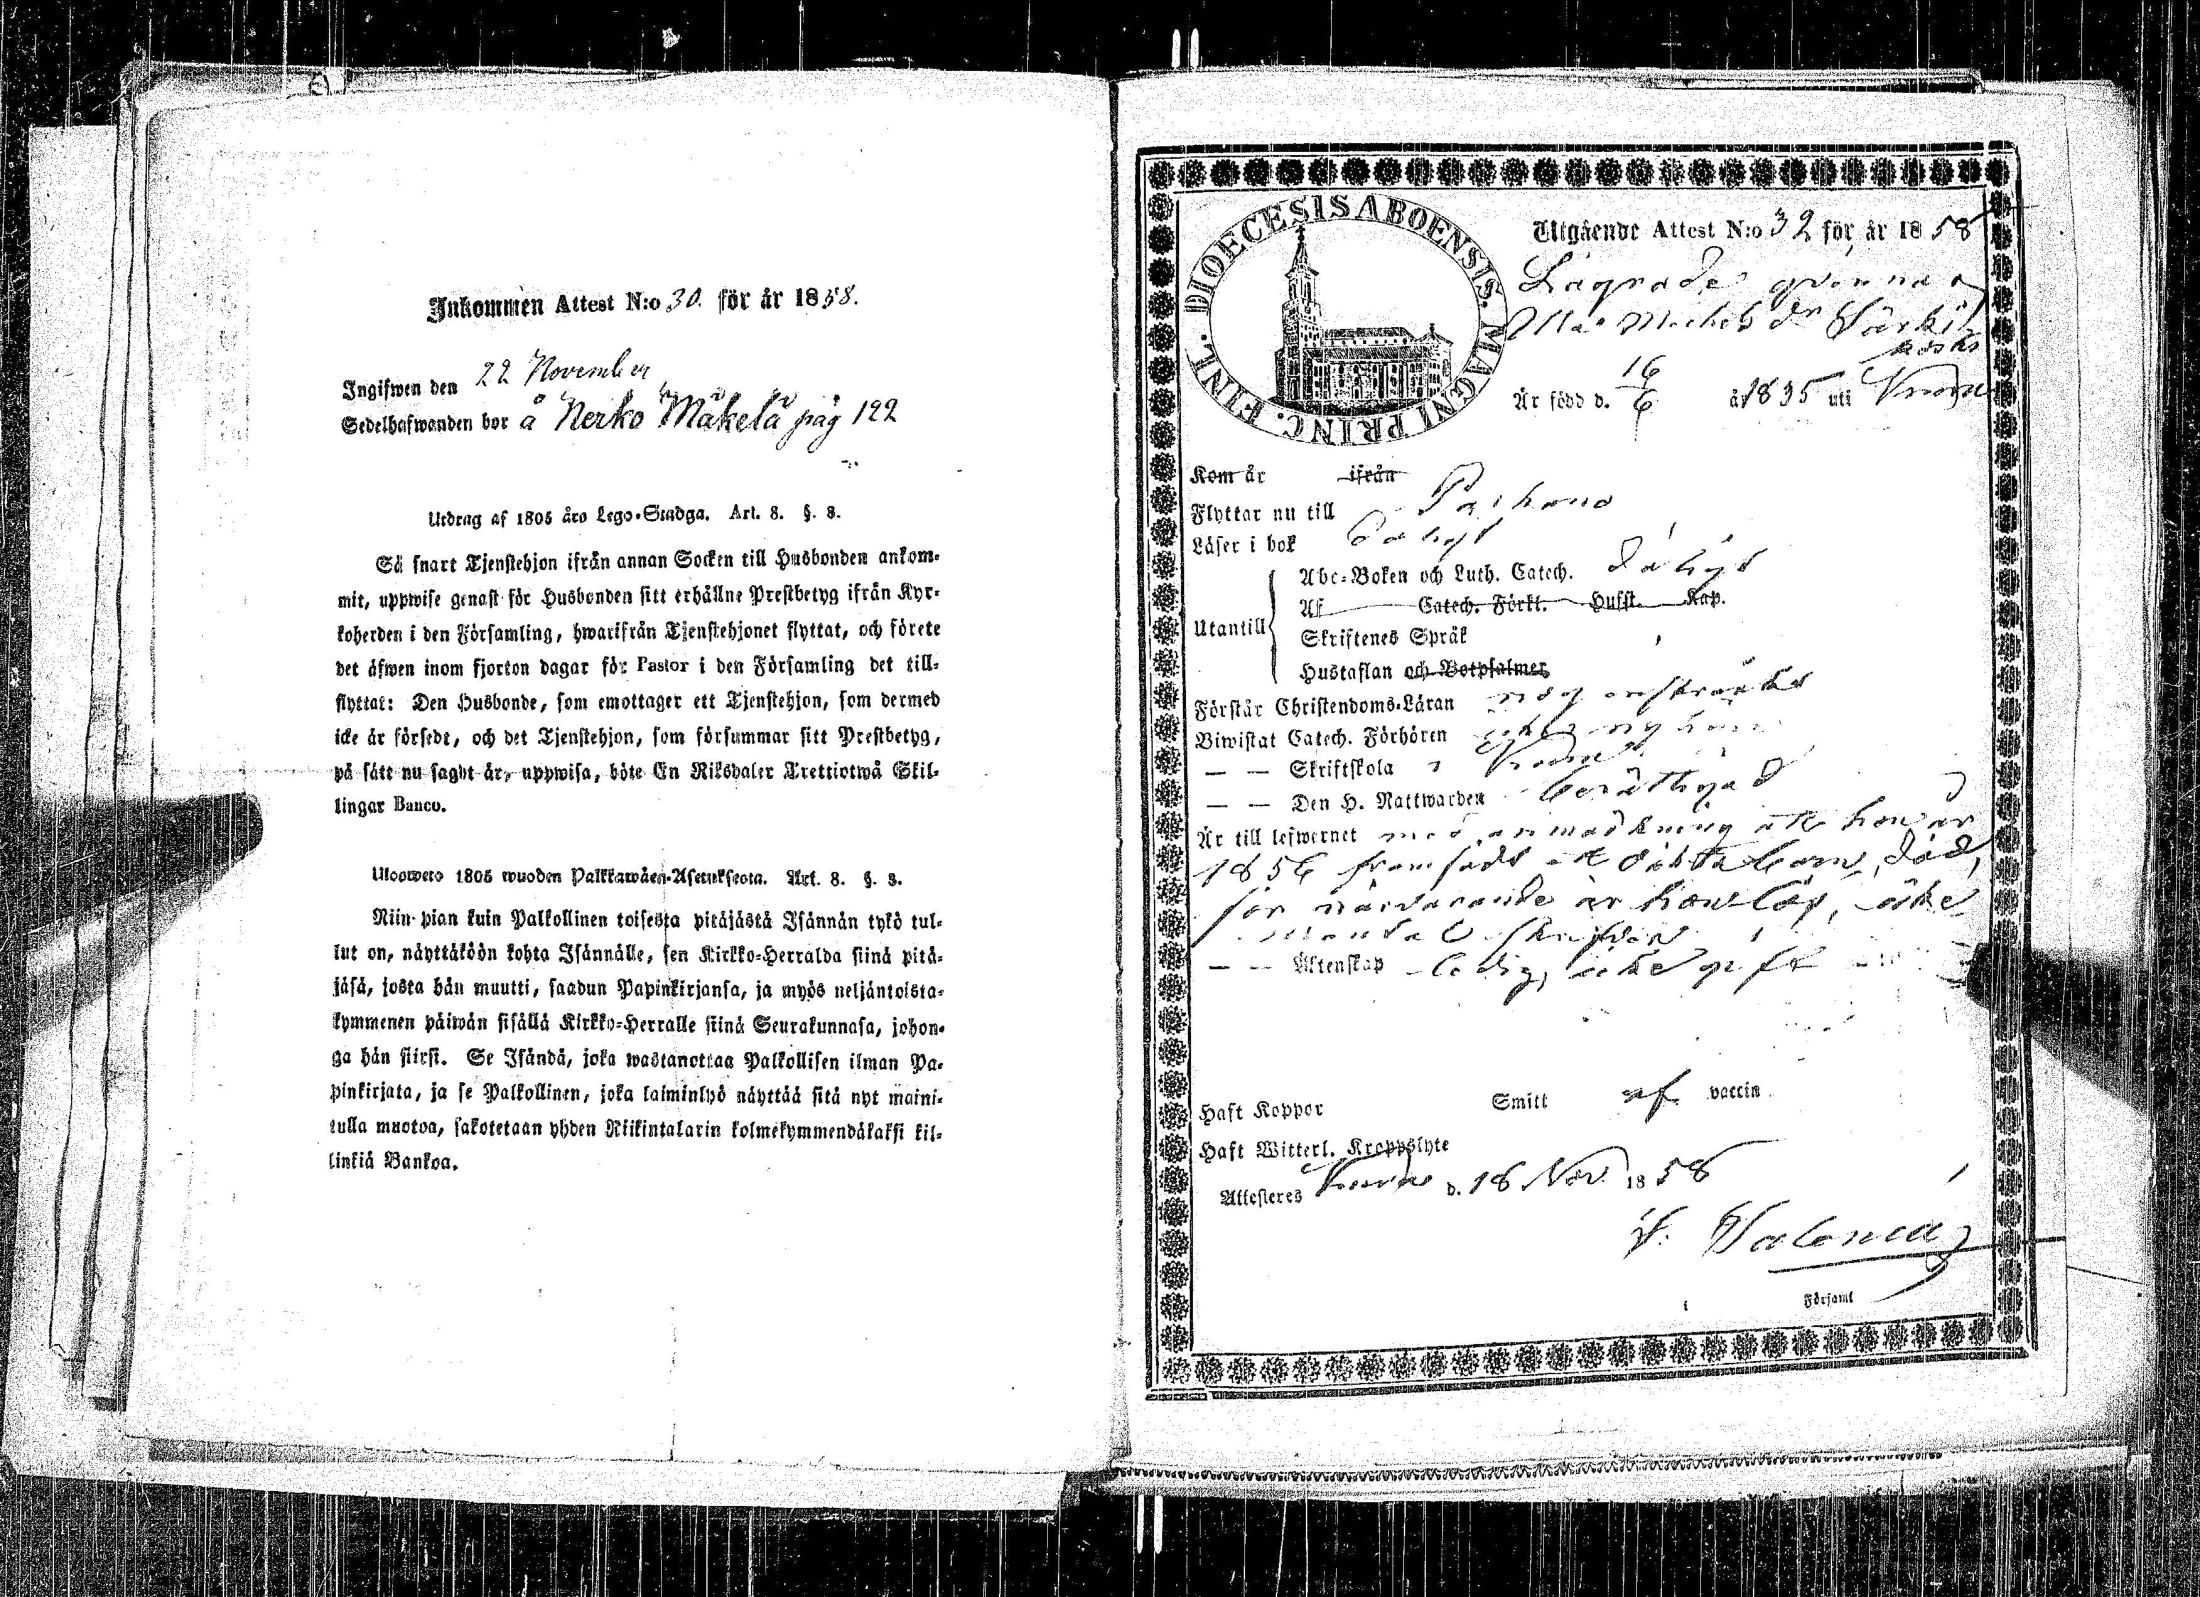 Inkommen Attest N:o 30. för år 1858.
Ingifwen den 22 November
Sedelhafwanden bor å Nerko Mäkelä pag 122
Utdrag af 1805 års Lego-Stadga. Art. 8. §. 3.
Så snart Tjenstehjon ifrån annan Socken till Husbonden ankom-
mit, uppwise genast för Husbonden sitt erhållne Prestbetyg ifrån Kyr-
koherden i den Församling, hwarifrån Tjenstehjonet flyttat, och förete
det äfwen inom fjorton dagar för Pastor i den Församling det till-
flyttat: Den Husbonde, som emottager ett Tjenstehjon, som dermed
icke är försedt, och det Tjenstehjon, som försummar sitt Prestbetyg,
på sätt nu sagdt är, uppwisa, böte En Riksdaler Trettiotwå Skil-
lingar Banco.
Ulosweto 1805 wuoden Palkkawäen-Asetuksesta. Art. 8. §. 3.
Niin pian kuin Palkollinen toisesta pitäjästä Isännän tykö tul-
lut on, näyttäköön kohta Isännälle, sen Kirkko-Herralda siinä pitä-
jäsä, josta hän muutti, saadun Papinkirjansa, ja myös neljäntoista-
kymmenen päiwän sisällä Kirkko-Herralle siinä Seurakunnasa, johon-
ga hän siirsi. Se Isändä, joka wastanottaa Palkollisen ilman Pa-
pinkirjata, ja se Palkollinen, joka laiminlyö näyttää sitä nyt maini-
tulla muotoa, sakotetaan yhden Riikintalarin kolmekymmendäkaksi kil-
linkiä Bankoa.
DIOECESIS ABOENSIS. MAGNI PRINC. FINL.
Utgående Attest N:o 32 för år 1858
Lägrade qvinnan
Michelsdr
Är född d. 16/6 år 1835 uti
Kom år ifrån
Flyttar nu till
Läser i bok dåligt
Abc-Boken och Luth. Catech. dåligt
Utantill
Af Catech. Förkl. Hufst. Kap.
Skriftenes Språk
Hustaflan och Botpsalmer
Förstår Christendoms-Läran
Biwistat Catech. Förhören
— — Skriftskola
— — Den H. Nattwarden berättigad
Är till lefwernet med anmärkning att hon år
1856 framfödt ett oäkta barn, död,
för närvarande är hon lös, icke
mantalsskrifven
— — Äktenskap ledig, icke gift
Haft Koppor Smitt af vaccin
Haft Witterl. Kroppslyte
Attesteres d. 18 Nov. 1858
i Församl